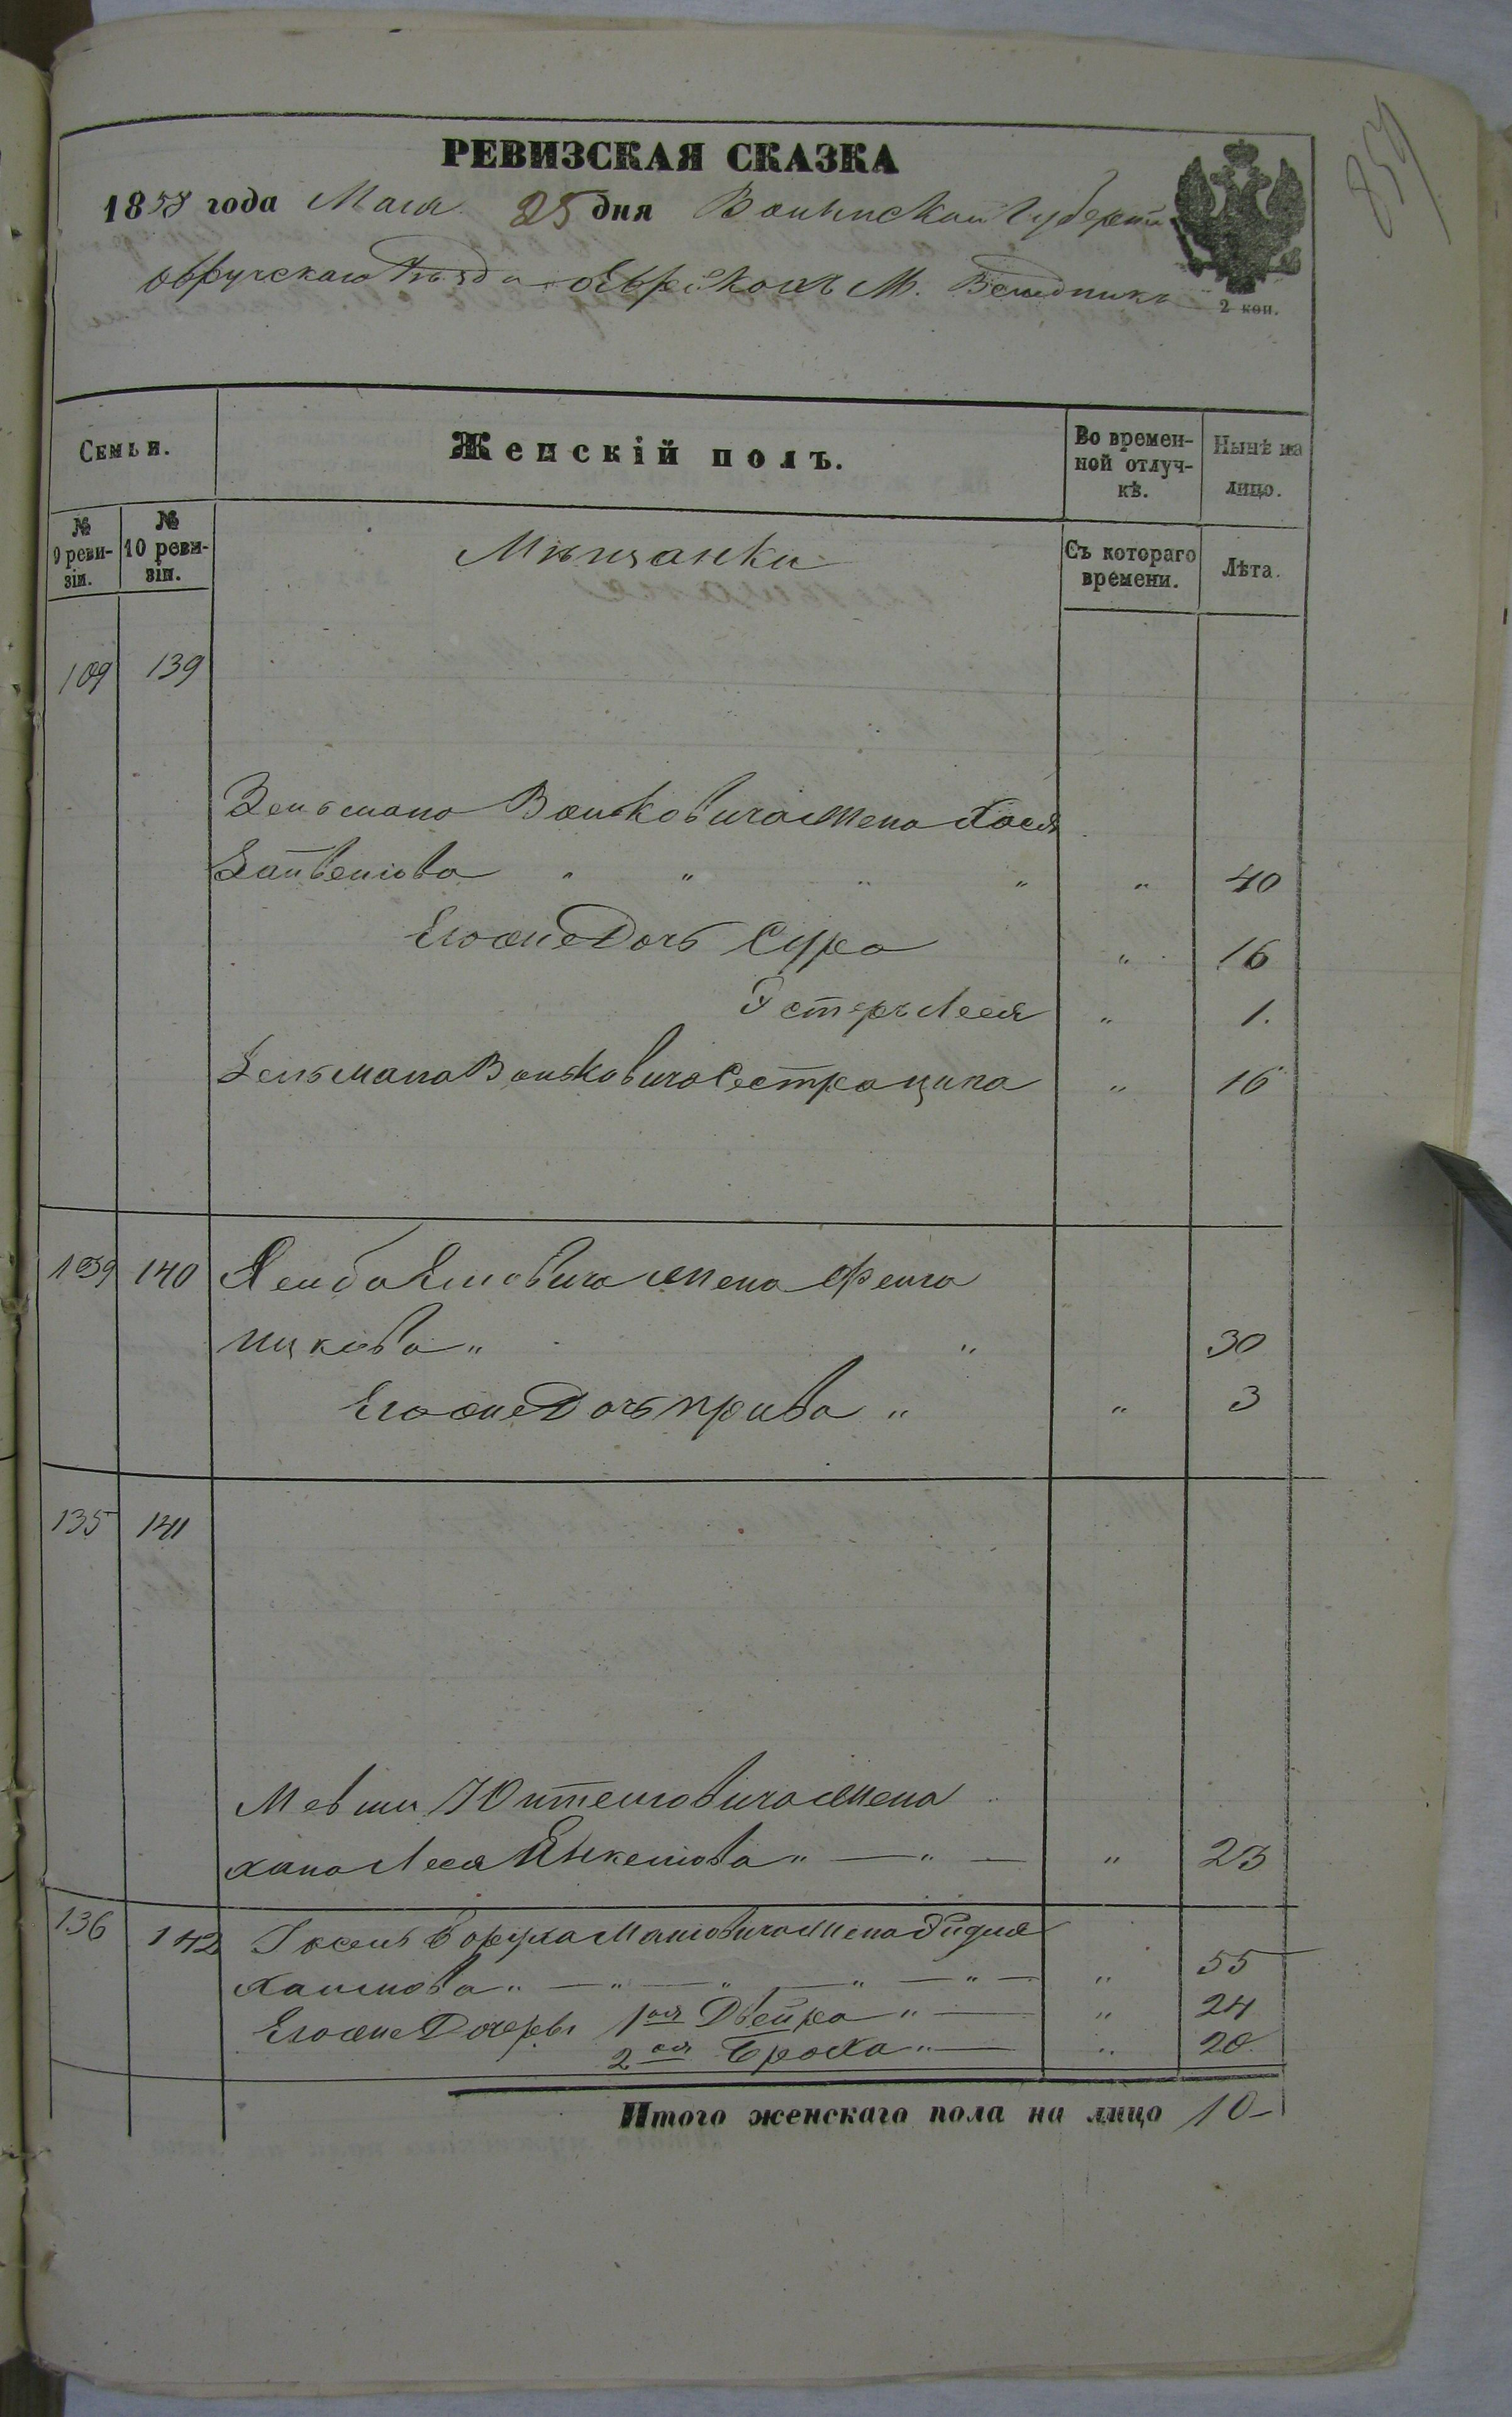 859
РЕВИЗСКАЯ СКАЗКА
1858 года Мая 25 дня Волынской Губерніи
Овручскаго Уѣзда о Еврейкахъ М. Веледникъ
2 коп.
Семьи.
Женскій полъ.
Во временной отлучкѣ.
Нынѣ на лицо.
№ 9 ревизіи.
№ 10 ревизіи.
Мѣщанки
Съ котораго времени.
Лѣта.
109 139
Зельмана Вольковича Жена Хася
" " " " " 40
Его же Дочь Сура " 16
Эстеръ Лея " 1.
Зельмана Вольковича Сестра Ципа " 16
139 140 Лейба Жена Фейга
Ицкова " " 30
Его же Дочь Прива " " 3
135 141
Мевши Жена
Хана Лея Янкелева " — " — " 23
136 142 Іосель Боруха Жена
Хаимова " — " — " — " — " — " 55
Его же Дочеры 1ая Двейра " — " 24
2ая Броха " — " 20
Итого женскаго пола на лицо 10